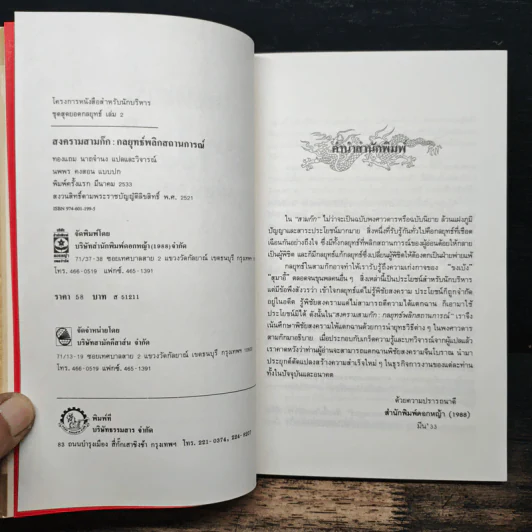 โครงการหนังสือสำหรับนักบริหาร
ชุดสุดยอดกลยุทธ์ เล่ม 2
สงครามสามก๊ก : กลยุทธ์พลิกสถานการณ์
ทองแถม นาถจำนง แปลและวิจารณ์
นพพร คงสอน แบบปก
พิมพ์ครั้งแรก มีนาคม 2533
สงวนสิทธิ์ตามพระราชบัญญัติลิขสิทธิ์ พ.ศ. 2521
จัดพิมพ์โดย
บริษัทสำนักพิมพ์ดอกหญ้า(1988)จำกัด
71/37-38 ซอยเทศบาลสาย 2 แขวงวัดกัลยาณ์ เขตธนบุรี กรุงเทพฯ
โทร. 466-0519 แฟกซ์. 465-1391
ราคา 58 บาท ส 61211
จัดจำหน่ายโดย
บริษัทสามัคคีสาส์น จำกัด
71/13-19 ซอยเทศบาลสาย 2 แขวงวัดกัลยาณ์ เขตธนบุรี กรุงเทพฯ
โทร. 466-0519 แฟกซ์. 465-1391
พิมพ์ที่
บริษัทธรรมสาร จำกัด
83 ถนนบำรุงเมือง สี่กั๊กเสาชิงช้า กรุงเทพฯ โทร. 221-0374, 224-8207
คำนำสำนักพิมพ์
ใน "สามก๊ก" ไม่ว่าจะเป็นฉบับพงศาวดารหรือฉบับนิยาย ล้วนแฝงภูมิ
ปัญญาและสาระประโยชน์มากมาย สิ่งหนึ่งที่รับรู้กันทั่วไปคือกลยุทธ์ที่เชือด
เฉือนกันอย่างถึงใจ ซึ่งมีทั้งกลยุทธ์ที่พลิกสถานการณ์ของผู้อ่อนด้อยให้กลาย
เป็นผู้พิชิต และก็มีกลยุทธ์แก้กลยุทธ์ซึ่งเปลี่ยนผู้พิชิตให้ต้องตกเป็นฝ่ายพ่ายแพ้
กลยุทธ์ในสามก๊กอาจทำให้เรารับรู้ถึงความเก่งกาจของ "ขงเบ้ง"
"สุมาอี้" ตลอดจนขุนพลคนอื่น ๆ สิ่งเหล่านี้เป็นประโยชน์สำหรับนักบริหาร
แต่มีข้อพึงสังวรว่า เข้าใจกลยุทธ์แต่ไม่รู้พิชัยสงคราม ประโยชน์ก็ถูกจำกัด
อยู่ในอดีต รู้พิชัยสงครามแต่ไม่สามารถตีความให้แตกฉาน ก็เอามาใช้
ประโยชน์มิได้ ดังนั้นใน"สงครามสามก๊ก : กลยุทธ์พลิกสถานการณ์" เราจึง
เน้นศึกษาพิชัยสงครามให้แตกฉานด้วยการนำยุทธวิธีต่าง ๆ ในพงศาวดาร
สามก๊กมาอธิบาย เมื่อประกอบกับเกร็ดความรู้และบทวิจารณ์จากผู้แปลแล้ว
เราคาดหวังว่าท่านผู้อ่านจะสามารถแตกฉานพิชัยสงครามจีนโบราณ นำมา
ประยุกต์ดัดแปลงสร้างความสำเร็จใหม่ ๆ ในธุรกิจการงานของแต่ละท่าน
ทั้งในปัจจุบันและอนาคต
ด้วยความปรารถนาดี
สำนักพิมพ์ดอกหญ้า (1988)
มีน'33